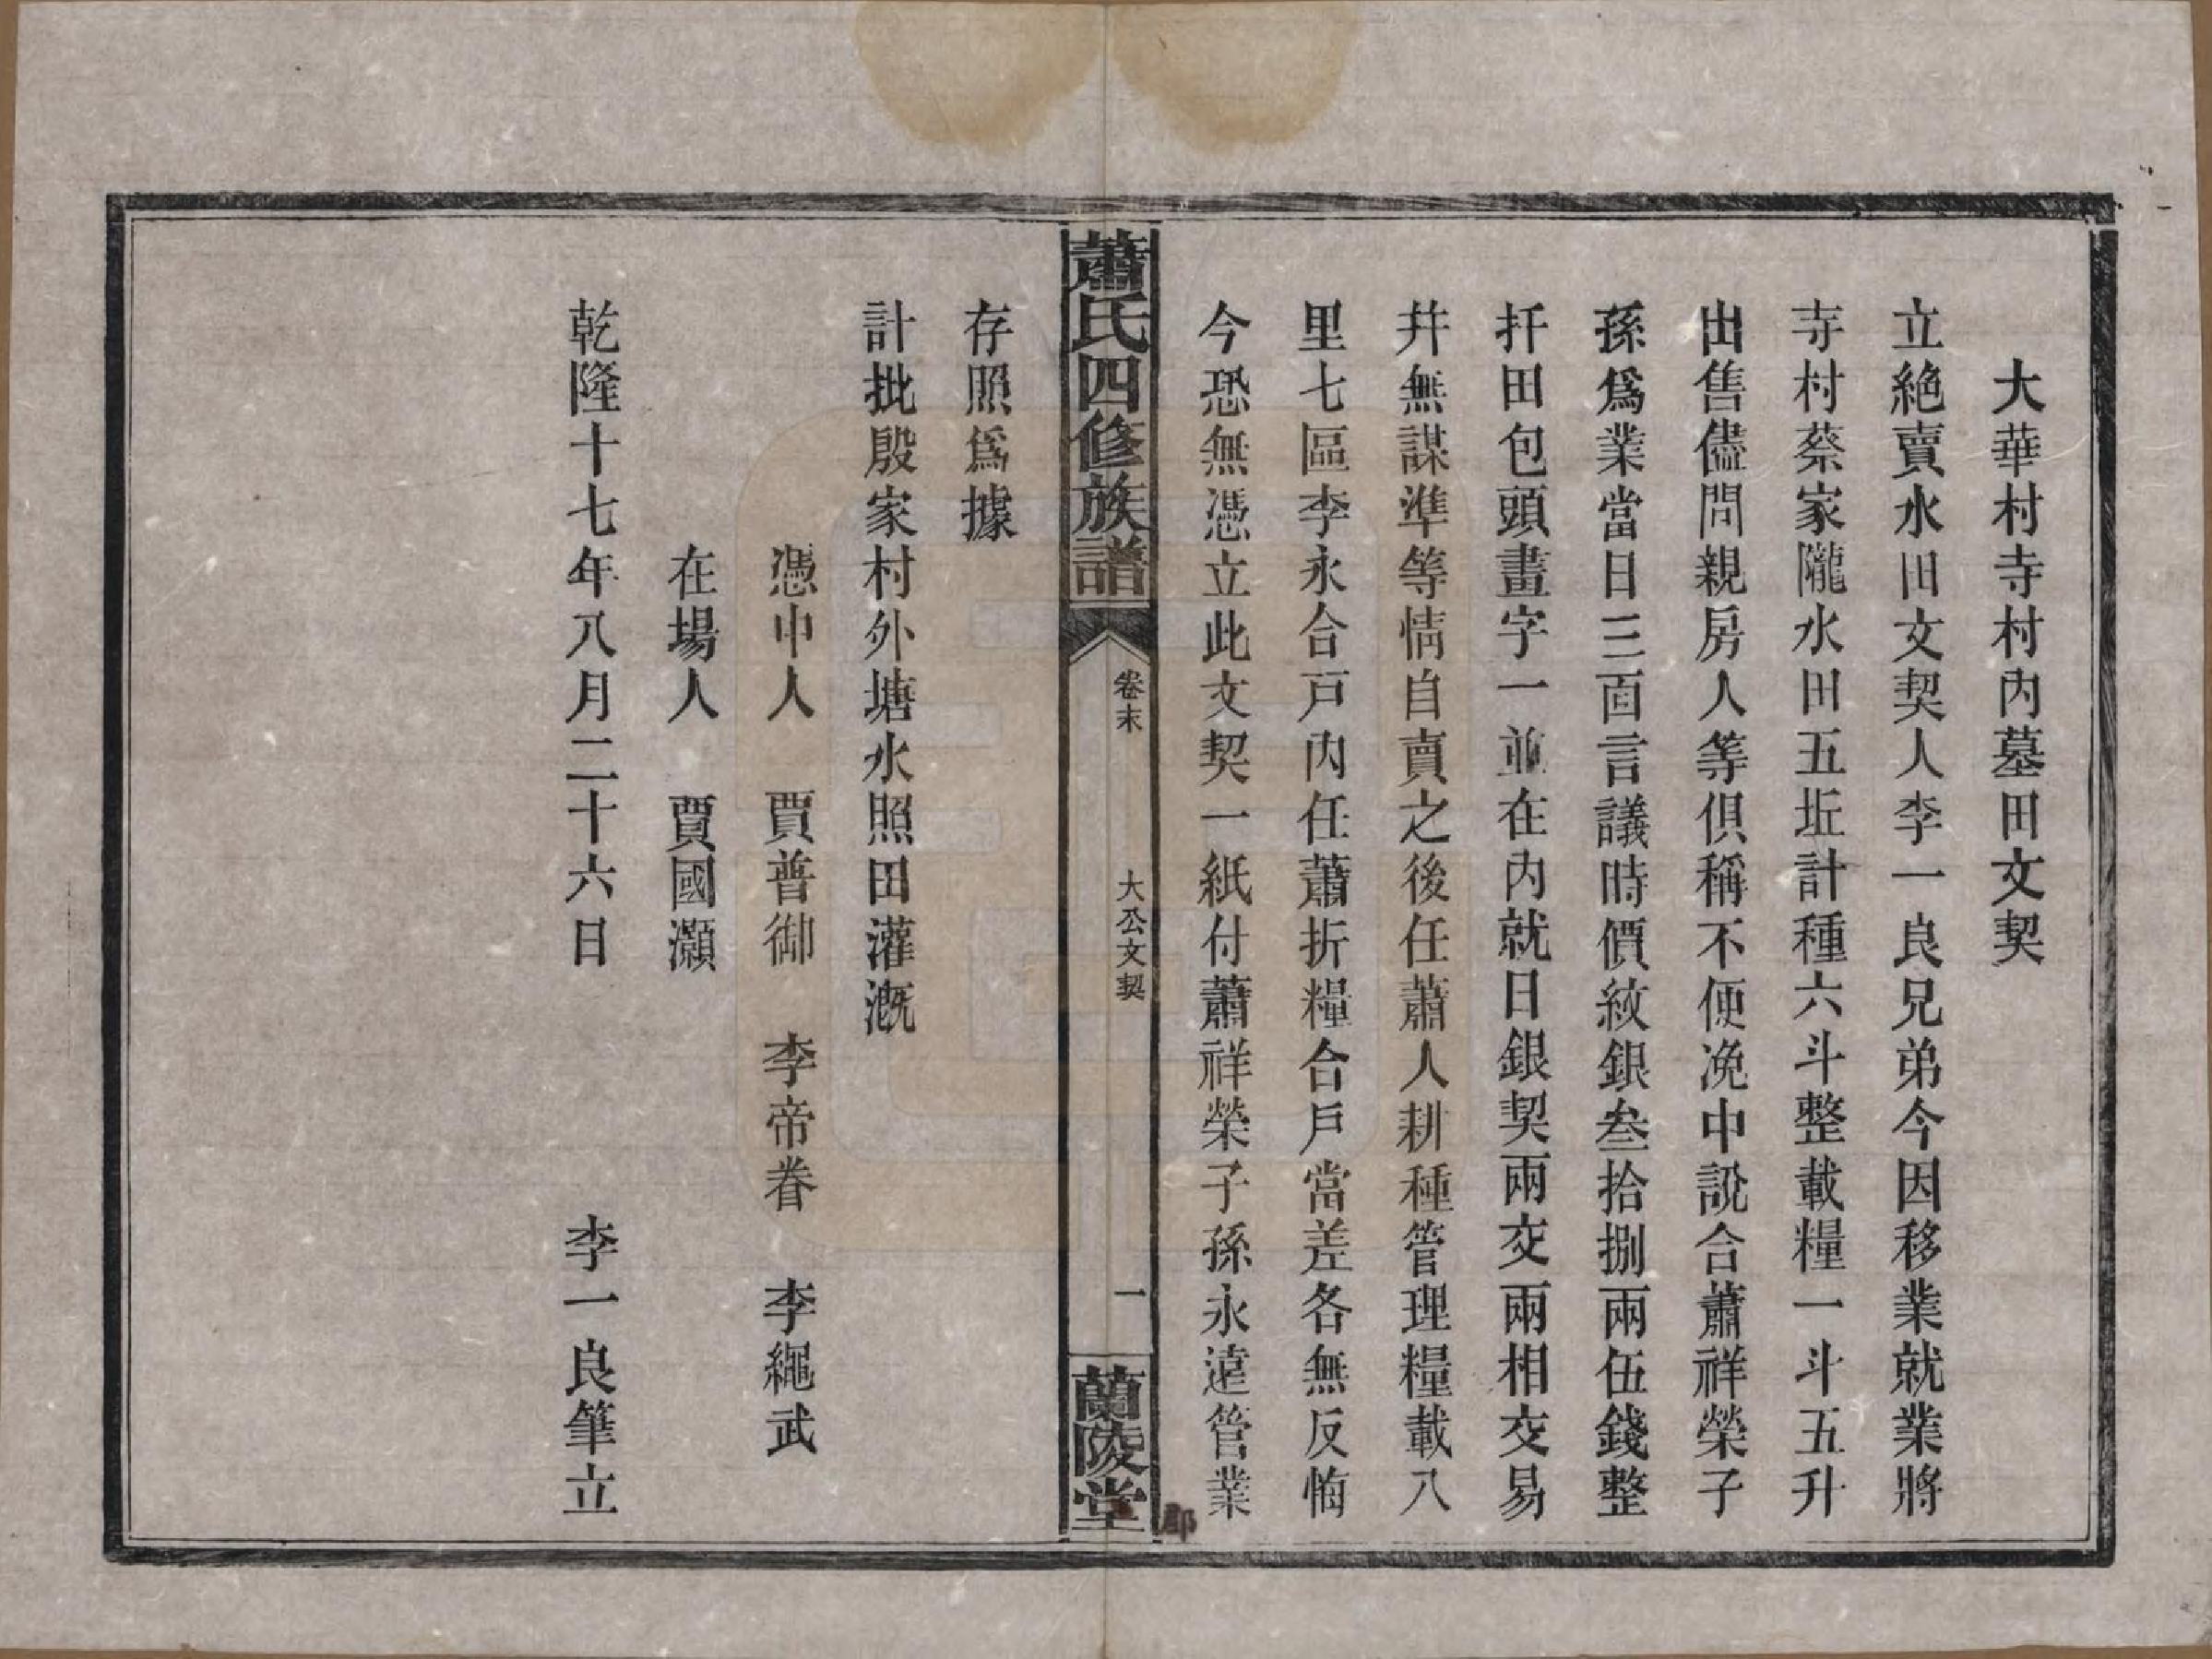 大華村寺村內墓田文契
立絶賣水田文契人李一良兄弟今因移業就業將
寺村蔡家隴水田五坵計種六斗整載糧一斗五升
出售儘問親房人等俱稱不便凂中説合蕭祥榮子
孫爲業當日三面言議時價紋銀叁拾捌兩伍錢整
扦田包頭畫字一並在內就日銀契兩交兩相交易
幷無謀準等情自賣之後任蕭人耕種管理糧載八
里七區李永合戸內任蕭折糧合戸當差各無反悔
今恐無憑立此文契一紙付蕭祥榮子孫永遠管業
蕭氏四修族譜
卷末
大公文契
一
蘭陵堂
存照爲據
計批殷家村外塘水照田灌漑
憑中人　賈普御　李帝眷　李繩武
在場人　賈國灝
乾隆十七年八月二十六日　李一良筆立